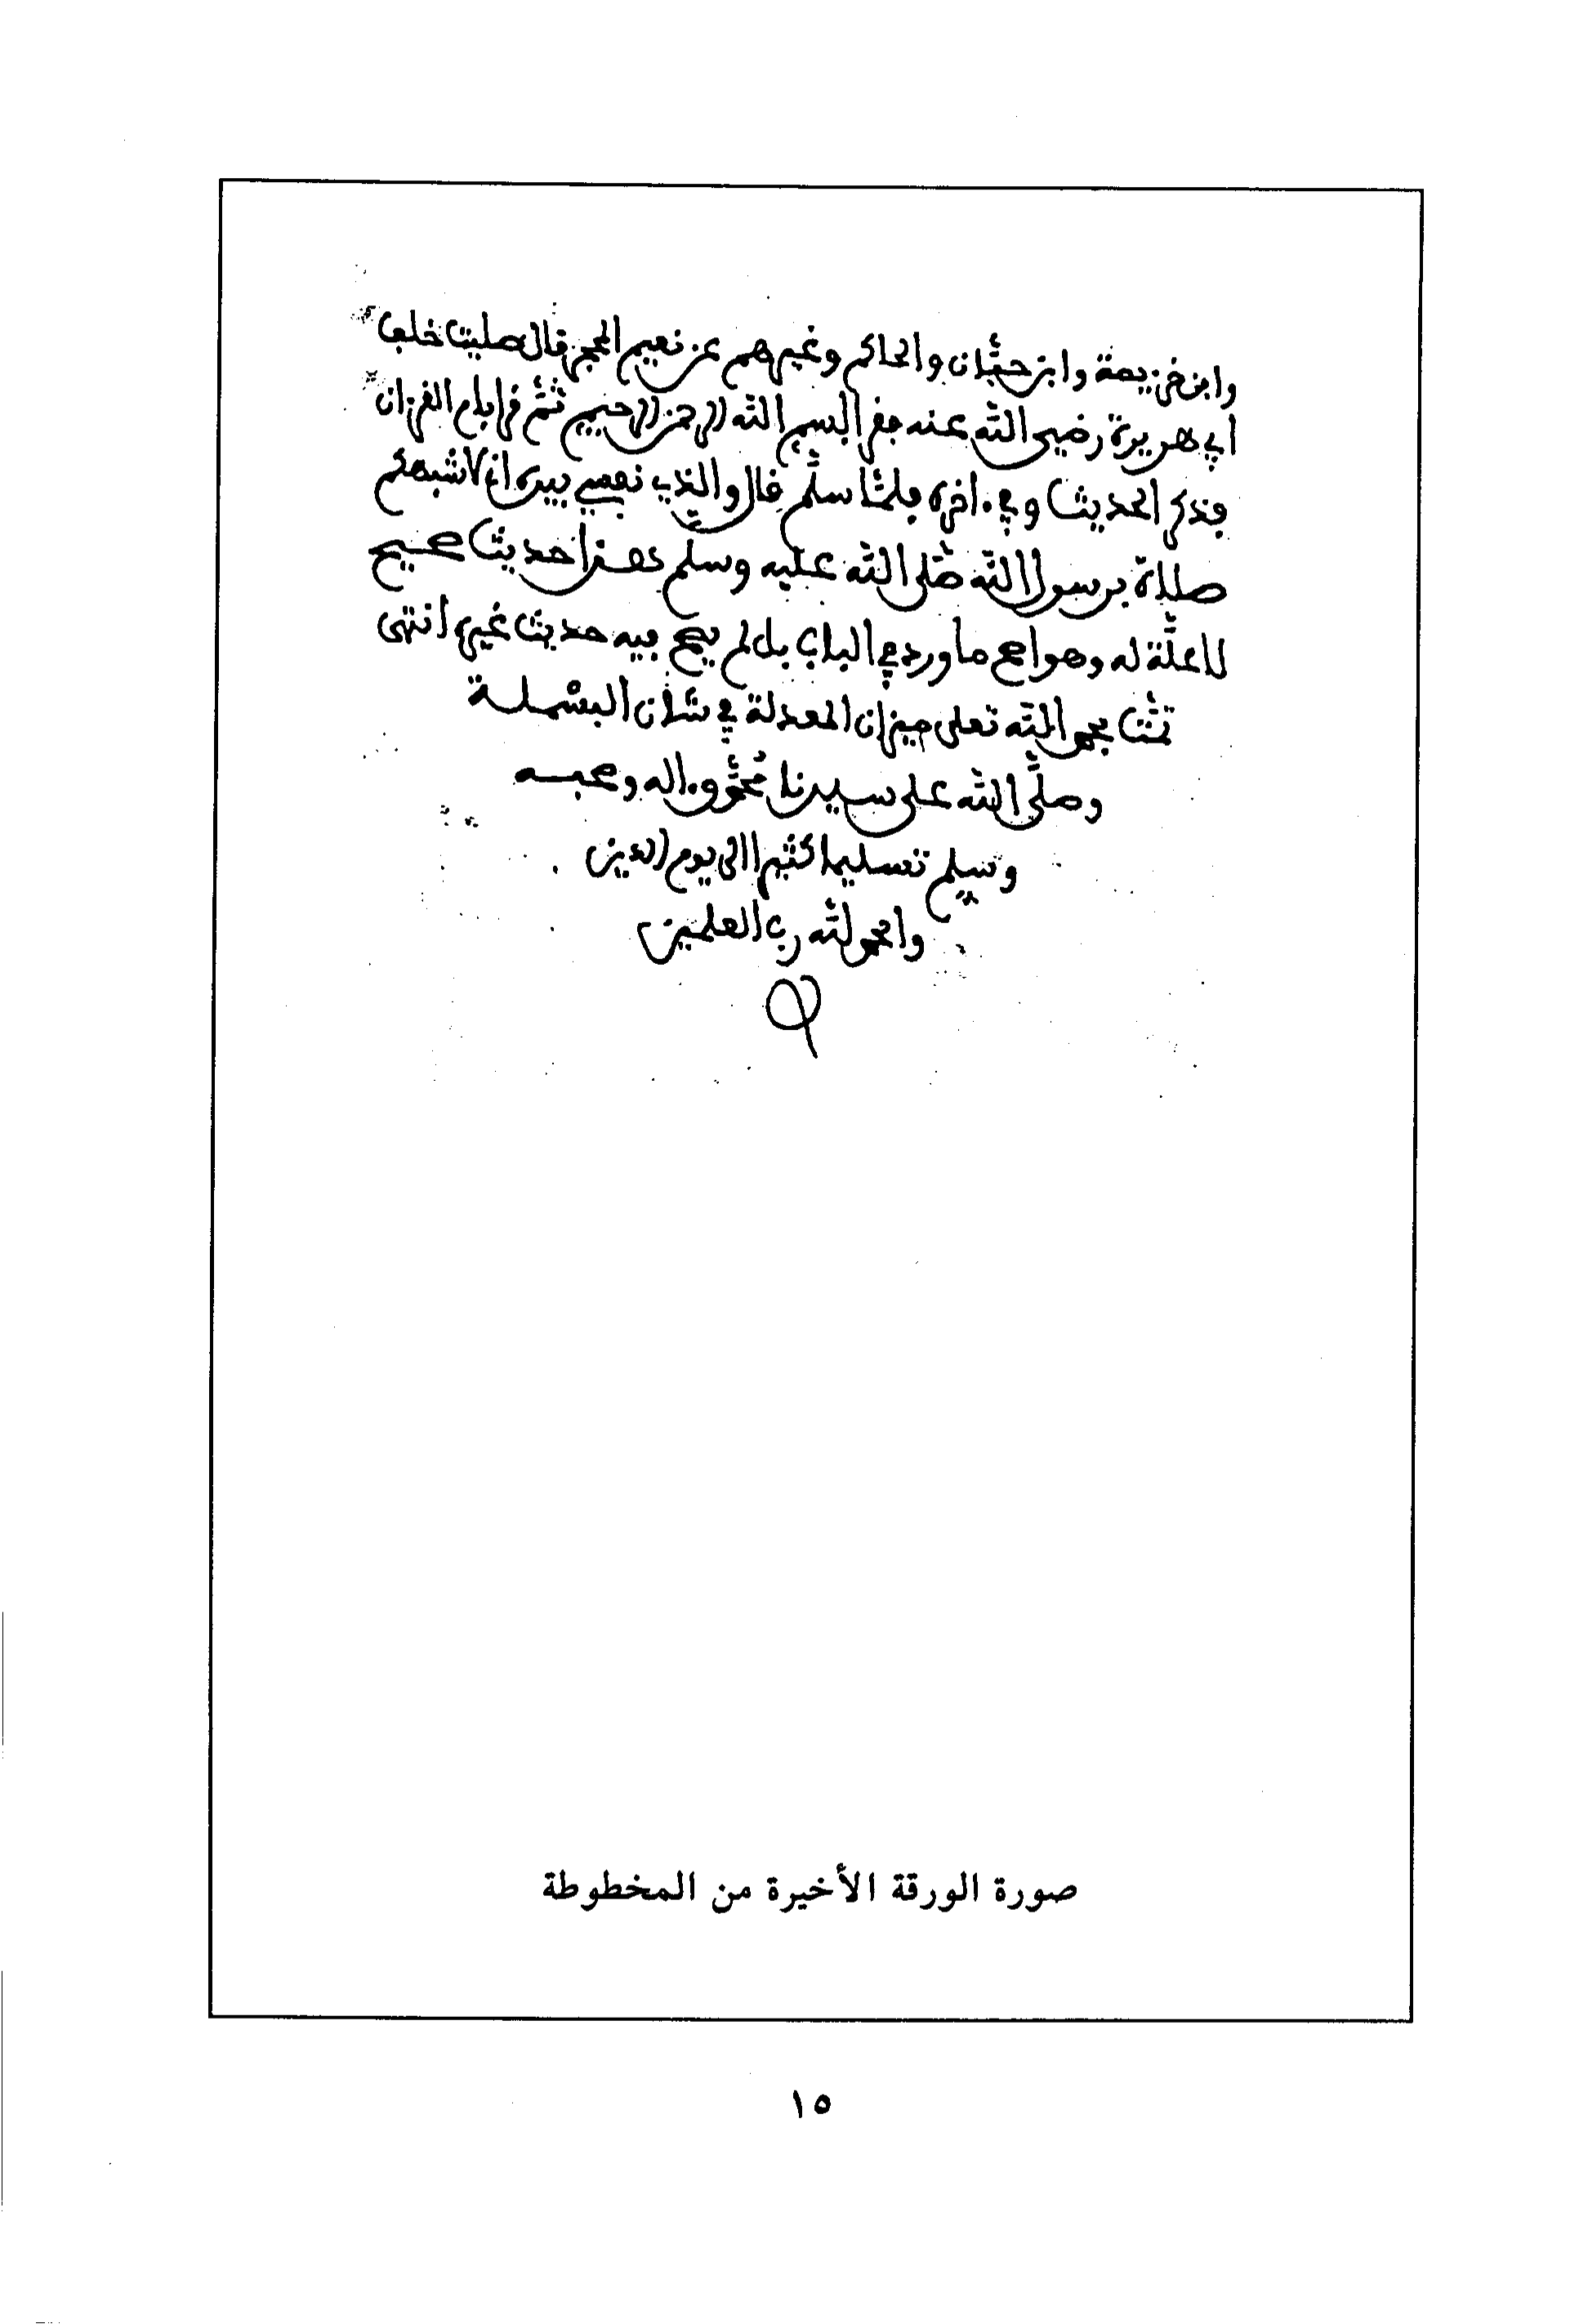 وابن خزيمة وابن حبَّان والحاكم وغيرهم عن نعيم المجمر قال صليت خلف
أبي هريرة رضي الله عنه فقرأ بسم الله الرحمن الرحيم ثمَّ قرا بام القرءان
فذكر الحديث وفي ءاخره فلمَّا سلَّم قال والذي نفسي بيده اني لاشبهكم
صلاة برسول الله صلى الله عليه وسلم هذا حديث صحيح
لا علَّة له وهو اصح ما ورد في الباب بل لم يصح فيه حديث غيره انتهى
تمَّت بحمد الله تعلى ميزان المعدلة في شان البسْملة
وصلَّى الله على سيدنا مُحمَّد وءاله وصحبه
وسلم تسليما كثيرا الى يوم الدين
والحمد لله رب العلمين
صورة الورقة الأخيرة من المخطوطة
١٥